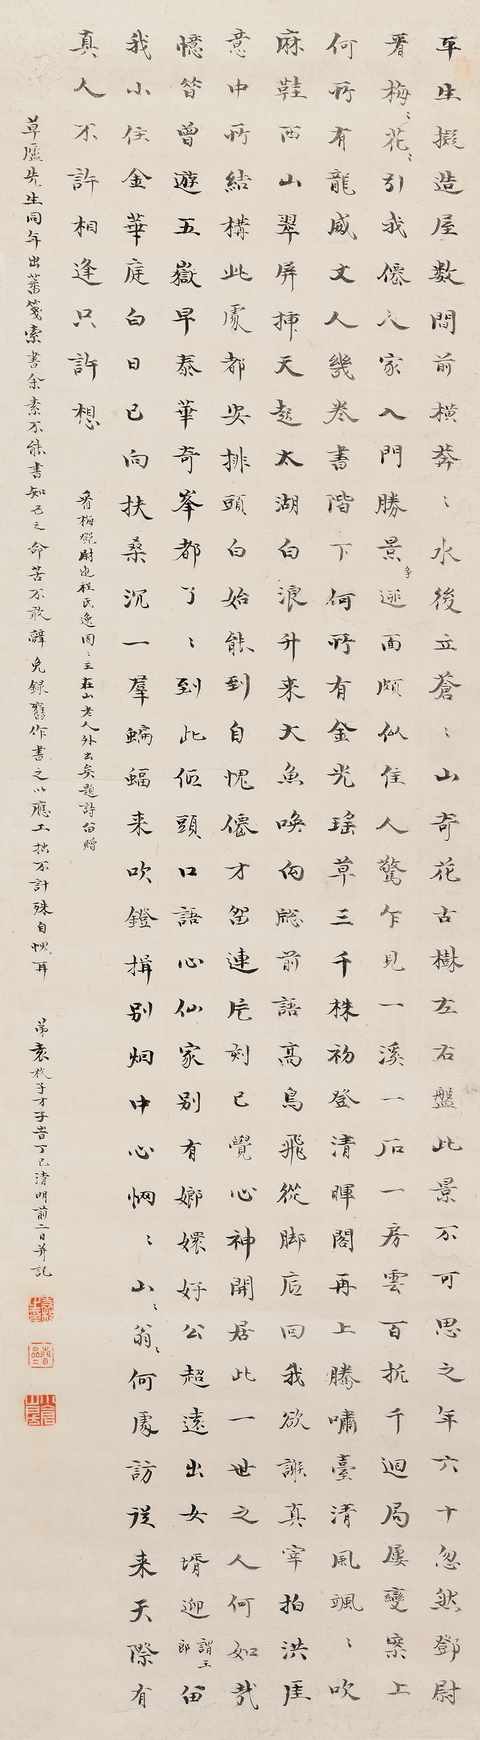 平生擬造屋數間前橫莽〻水後立蒼〻山奇花古樹左右盤此景不可思之年六十忽然鄧尉
看梅〻花〻引我僊人家入門勝景爭迎面頗似住人驚乍見一溪一石一房雲百折千迴局屢變案上
何所有龍威丈人幾卷書階下何所有金光瑤草三千株初登清暉閣再上騰嘯臺清風颯〻吹
麻鞋西山翠屏插天起太湖白浪升來大魚喚向窗前語高鳥飛從脚后回我欲謝真宰拍洪厓
意中所結構此處都安排頭白始能到自愧僊才留連片刻已覺心神開居此一世之人何如哉
憶昔曾遊五嶽早泰華奇峯都了〻到此低頭口語心仙家別有嫏嬛好公超遠出女壻迎謂王郎留
我小住金華庭白日已向扶桑沉一羣蝙蝠來吹鐙揖別烟中心惘〻山〻翁〻何處訪從來天際有
真人不許相逢只許想
看梅鄧尉遊程氏逸園〻主在山老人外出矣題詩留贈
草廬先生同年出舊箋索書余素不能書知己之命苦不敢辭免錄舊作書之以應工拙不計殊自愧耳
弟袁枚子才手書丁巳清明前二日并記